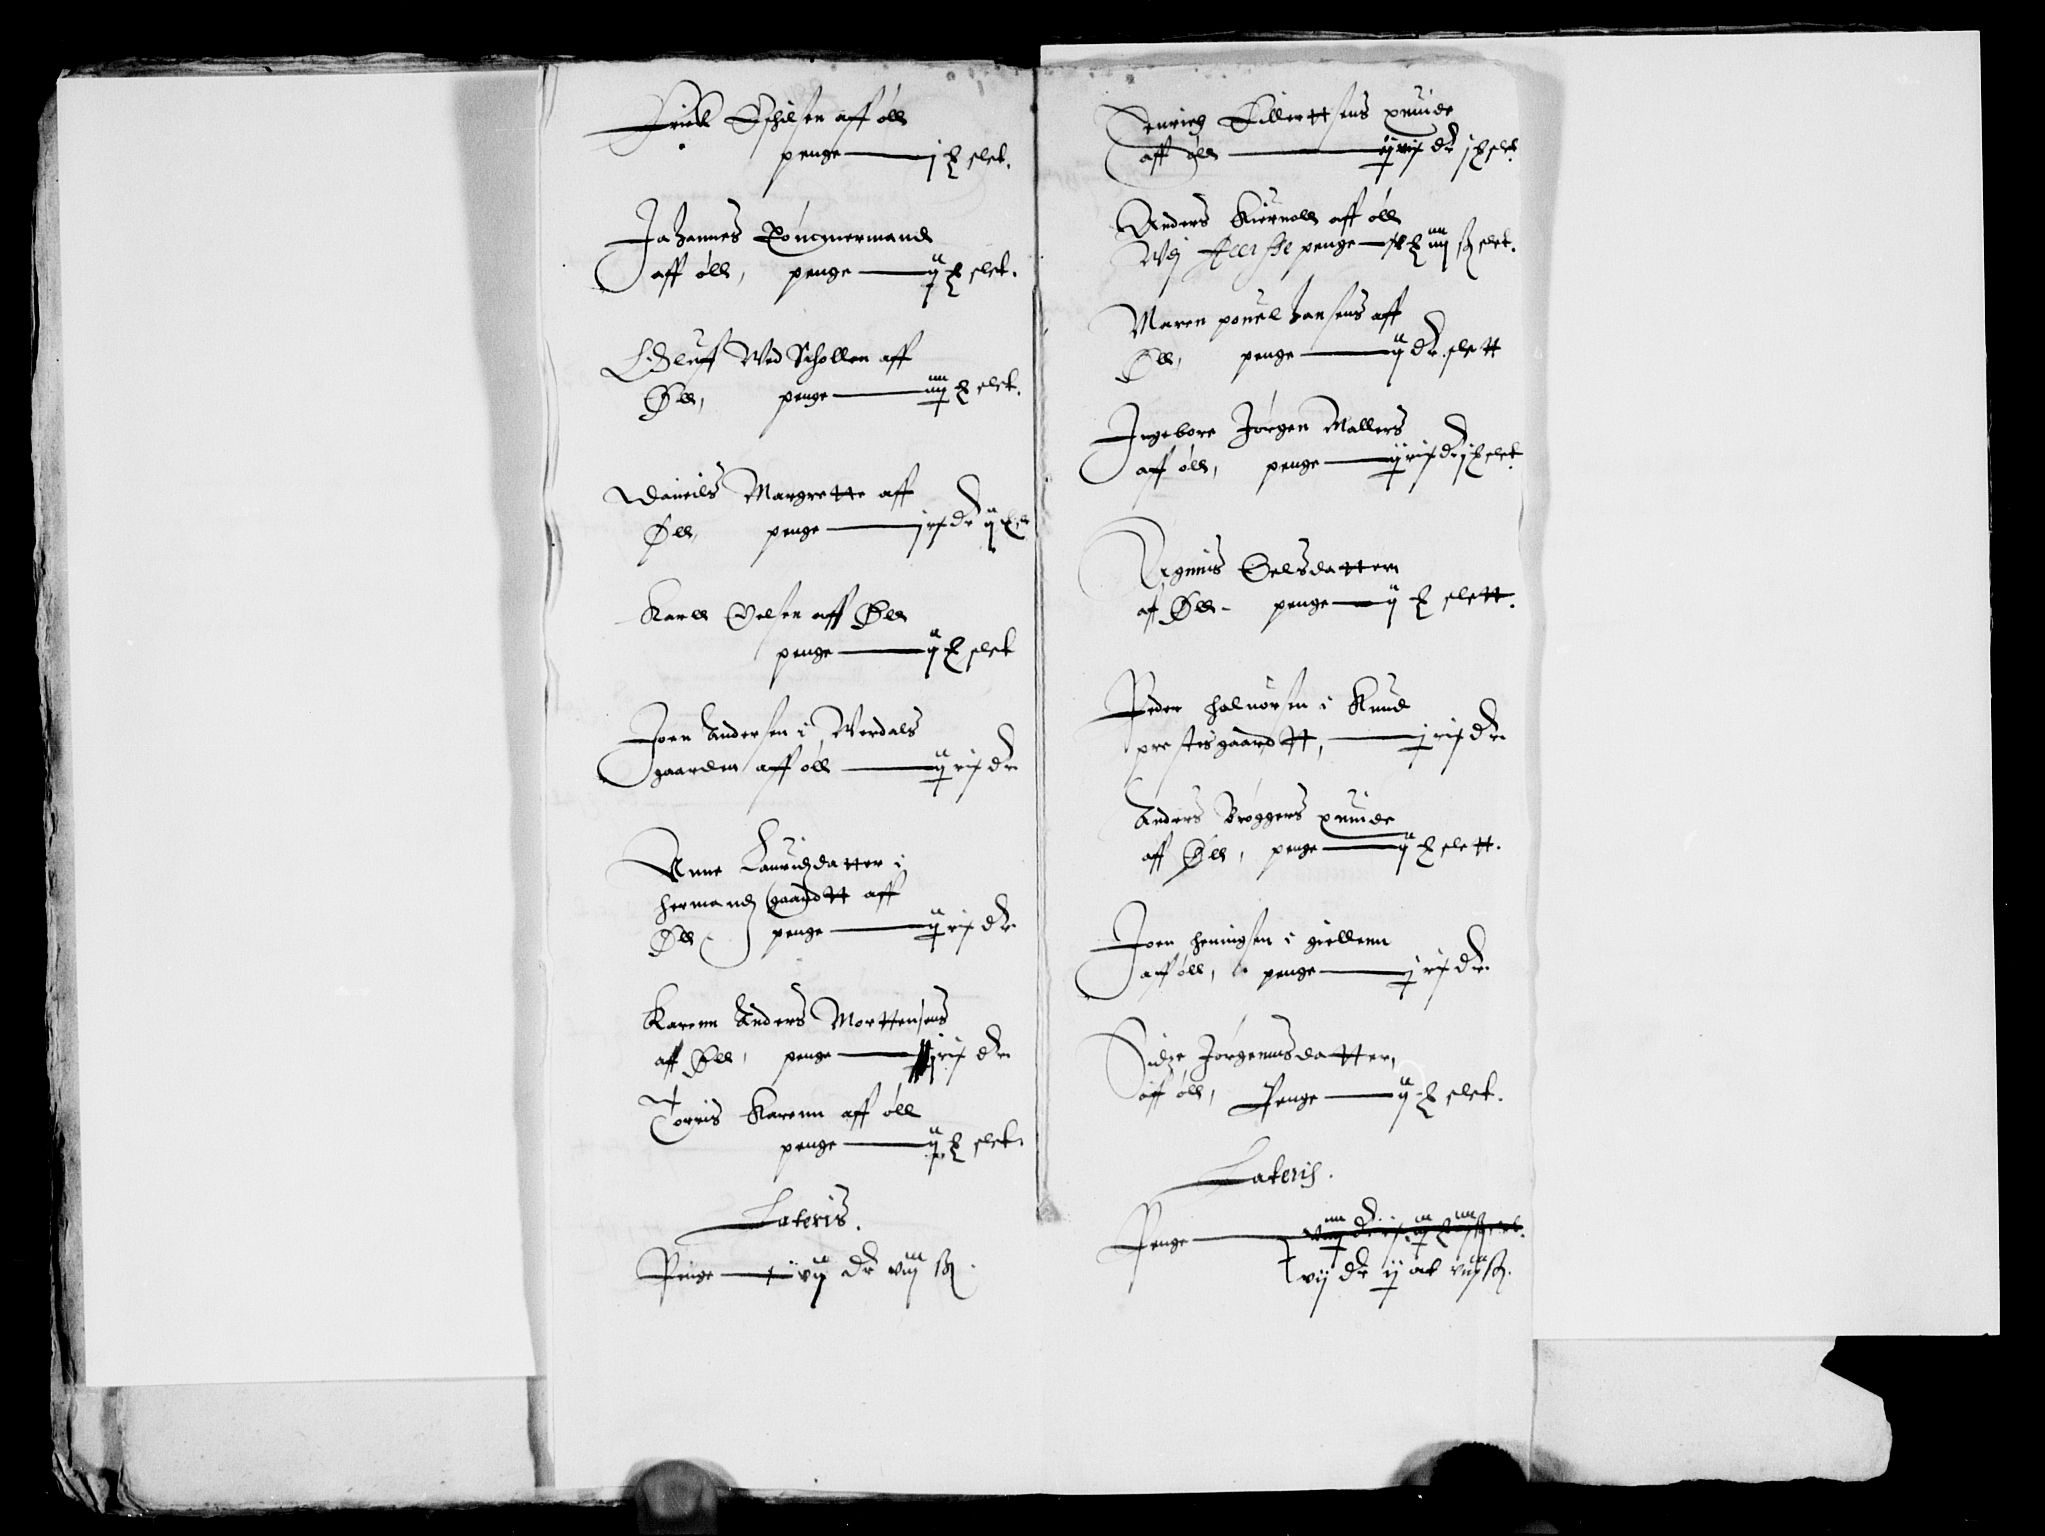 Erick Eschilsen aff øll
penge — j ℥ slet.
Johannes Pommermand
aff øll, penge — ij ℥ slet.
Oluff Wed Schollen aff
Øll, penge — iiij ℥ slet.
Daniels Margrette aff
Øll, penge — j rix dr ij ℥ sl
Karll Oelsen aff Øll
penge — ij ℥ slet
Joen Andersen i Werdals
gaarden aff øll — ij rix dr
Anne Lauridzdatter i
hermandz gaardtt aff
Øll penge — ij rix dr
Karenn Anders Morttensøns
aff Øll, penge — j rix dr
Torris Karenn aff øll
penge — ij ℥ slet.
Lateris.
Penge — vij dr viij ß.
Henrich Hillerttsens quinde
aff øll — rix dr j ℥ slet.
Anders aff øll
penge — ℥ iiij ß slet.
Maren pouel hansens aff
Øll, penge — ij dr slett
Ingebore Jørgen Mallers
aff øll, penge — ij rix dr j ℥ slet
Agnnis Oelsdatter
af Øll - penge — ij ℥ slett.
Peder halnorsen i Knud
prestisgaardtt, — j rix dr
Anders Brøggers quinde
aff Øll, penge — ij ℥ slett.
Joen heningsen i giellenn
aff øll, penge — j rix dr
Sidze Jørgennsdatter,
aff øll, Penge — ij ℥ slet.
Lateris.
Penge —
vij dr ij ort viij ß.